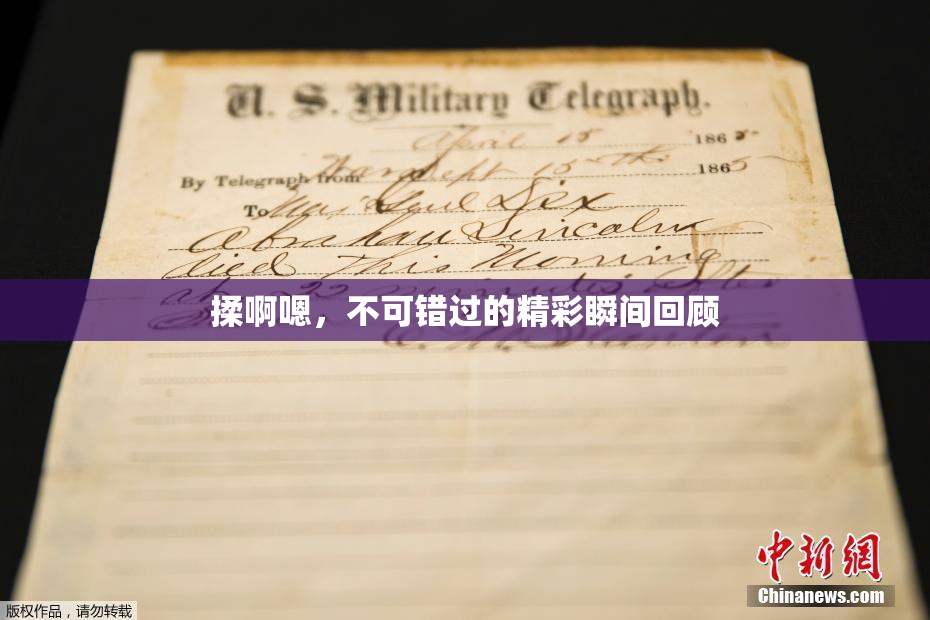 U. S. Military Telegraph.
April 15 1865
By Telegraph from War Dept 15th 1865
To Maj Genl Dix
Abraham Lincoln
died This Morning
at 22 minutes after
揉啊嗯，不可错过的精彩瞬间回顾
E. M. Stanton
中新网
Chinanews.com
版权作品，请勿转载